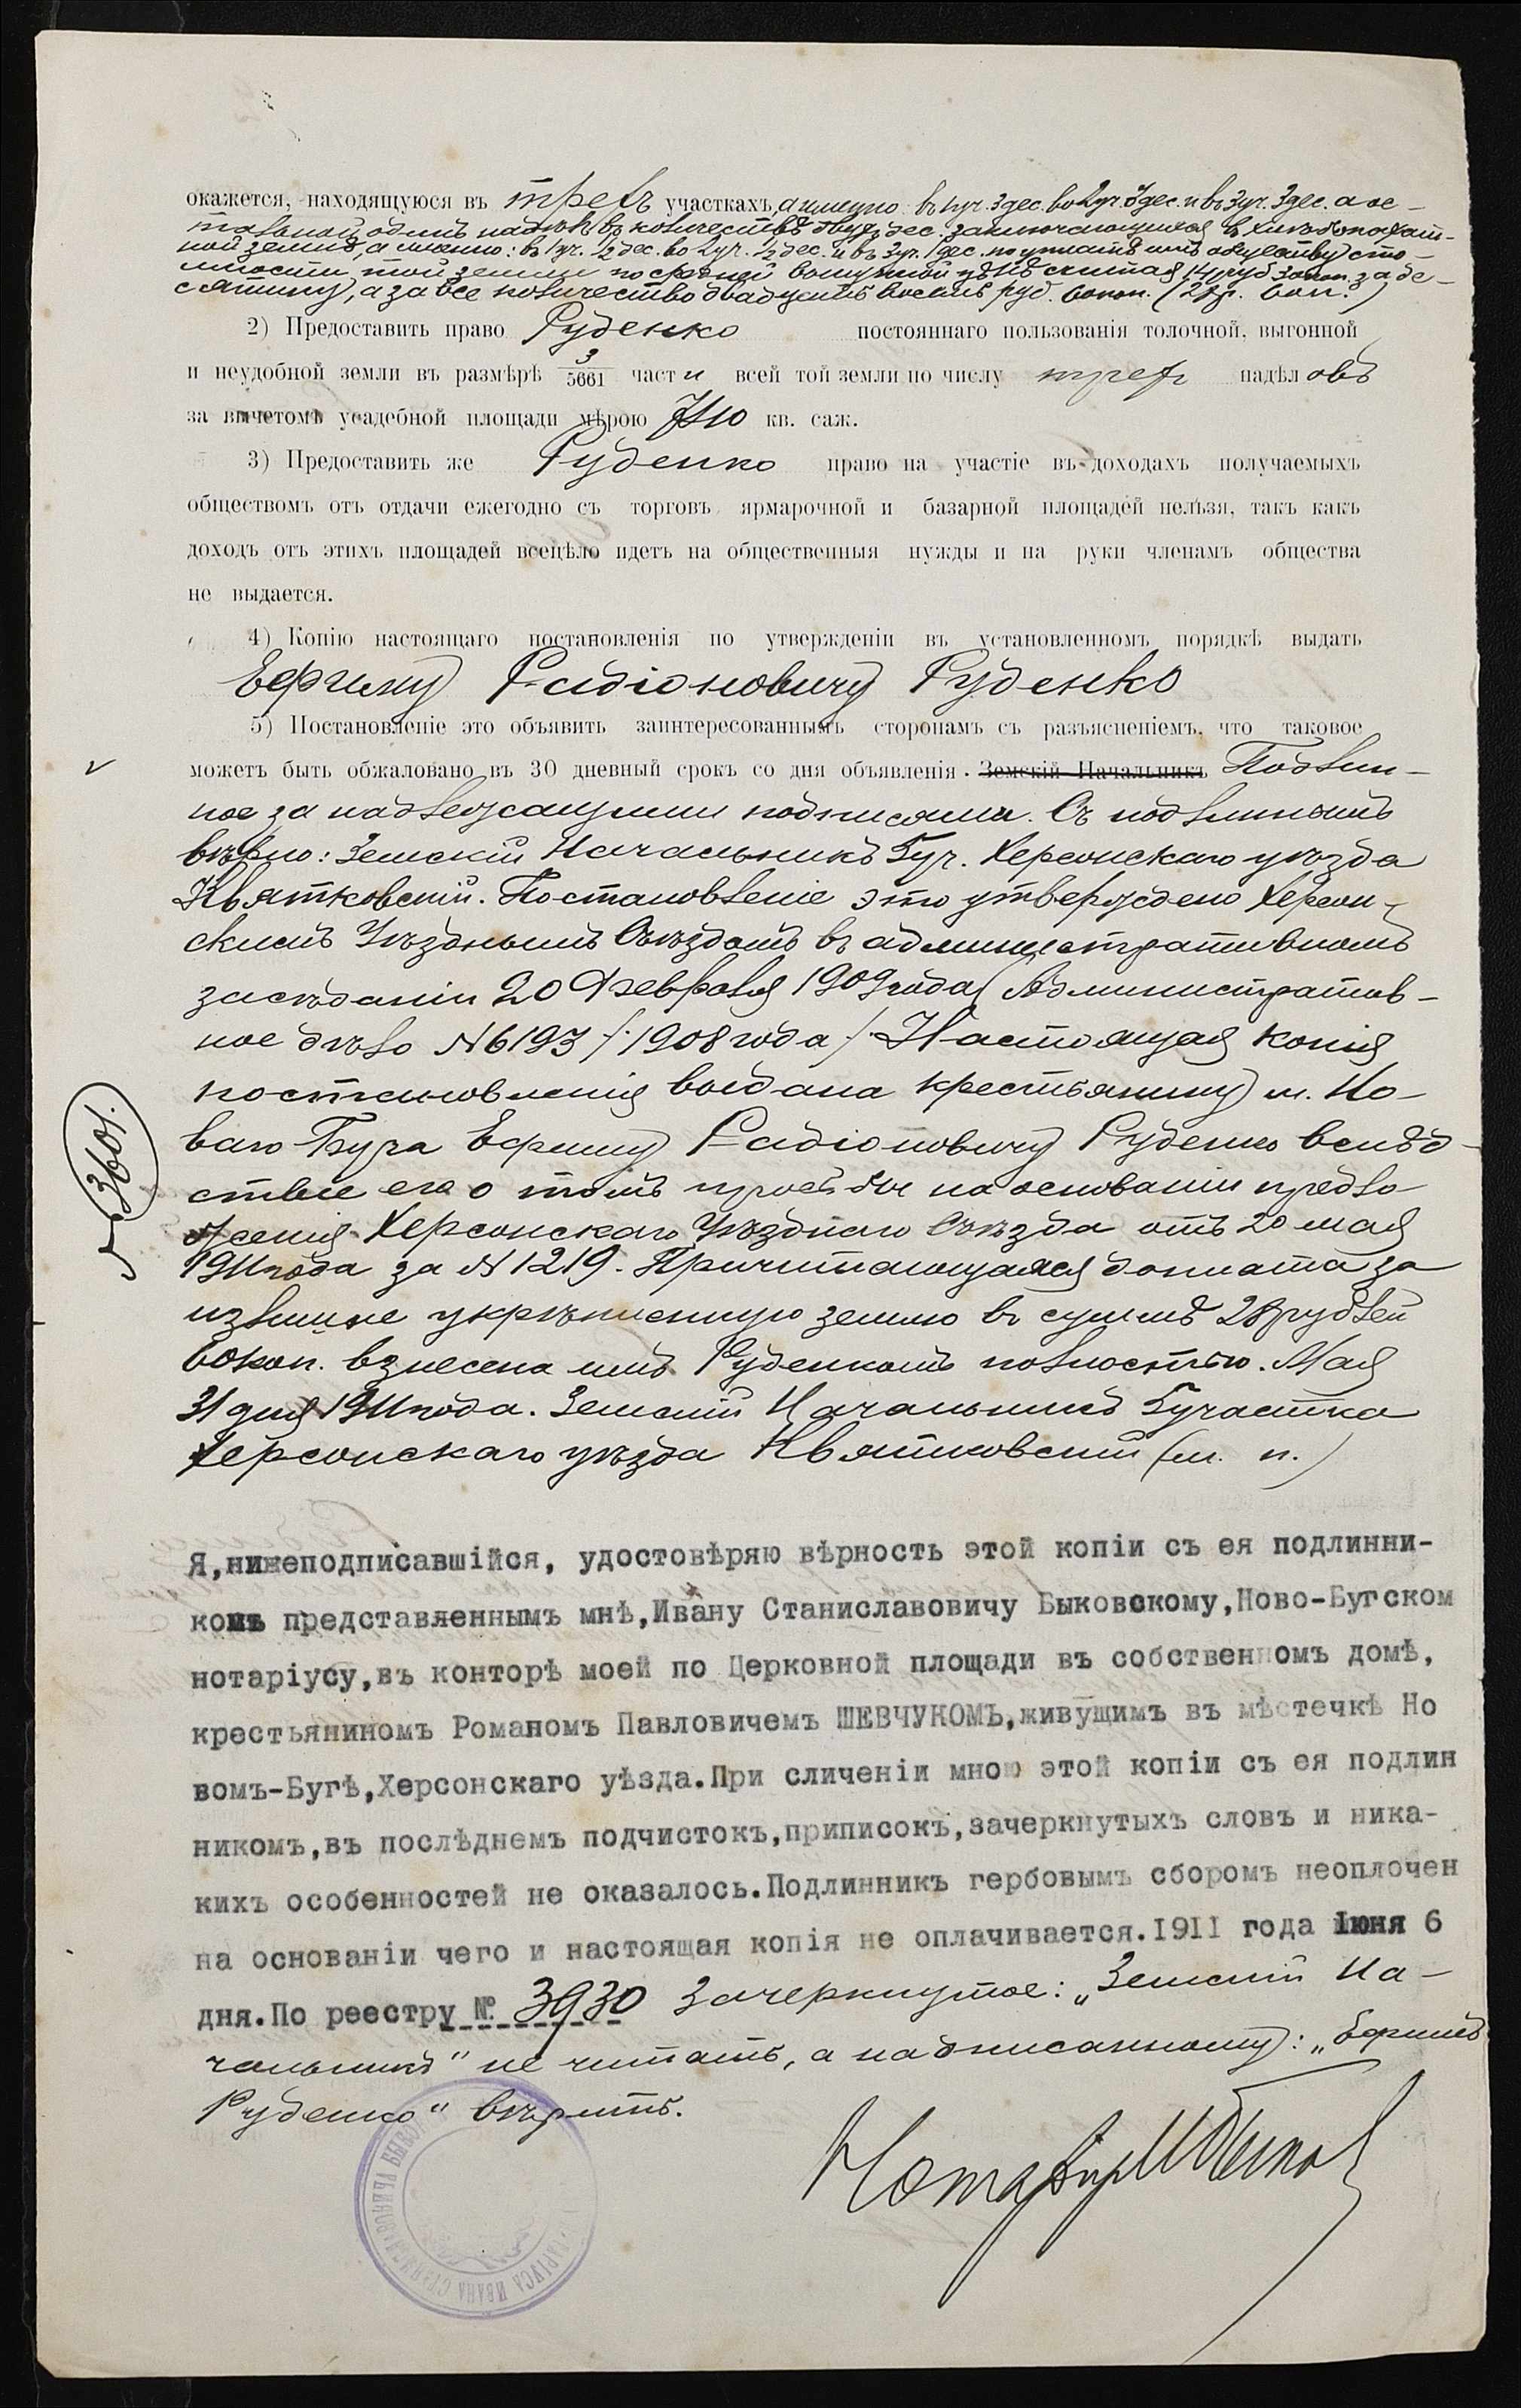 окажется, находящуюся въ трехъ участкахъ, а именно: въ 1 уч. 3 дес. во 2 уч. 3 дес. и въ 3 уч. 3 дес. а ос-
тальной одинъ надѣлъ въ количествѣ двухъ дес. заключающихся въ хлѣбопахат-
ной землѣ, а именно: въ 1 уч. ½ дес. во 2 уч. ½ дес. и въ 3 уч. 1 дес. по уплатѣ имъ обществу сто-
имости той земли по средней выкупной цѣнѣ считая 14 руб 30 коп. за де-
сятину, а за все количество двадцать восемь руб. 60 коп. (28 р. 60 к.)
2) Предоставить право Руденко постояннаго пользованія толочной, выгонной
и неудобной земли въ размѣрѣ 3/5661 части всей той земли по числу трехъ надѣловъ
за вычетомъ усадебной площади мѣрою кв. саж.
3) Предоставить же Руденко право на участіе въ доходахъ получаемыхъ
обществомъ отъ отдачи ежегодно съ торговъ ярмарочной и базарной площадей нельзя, такъ какъ
доходъ отъ этихъ площадей всецѣло идетъ на общественныя нужды и на руки членамъ общества
не выдается.
4) Копію настоящаго постановленія по утвержденіи въ установленномъ порядкѣ выдать
Ефиму Радіоновичу Руденко
5) Постановленіе это объявить заинтересованнымъ сторонамъ съ разъясненіемъ, что таковое
можетъ быть обжаловано въ 30 дневный срокъ со дня объявленія. Земскій Начальникъ Подлин-
ное за надлежащими подписями. Съ подлиннымъ
вѣрно: Земскій Начальникъ 5 уч. Херсонскаго уѣзда
Квятковскій. Постановленіе это утверждено Херсон-
скимъ Уѣзднымъ Съѣздомъ въ административномъ
засѣданіи 20 Февраля 1909 года (Административ-
ное дѣло № 6193/1908 года/. Настоящая копія
постановленія выдана крестьянину м. Но-
ваго Буга Ефиму Радіоновичу Руденко вслѣд-
ствіе его о томъ просьбы на основаніи предло
женія Херсонскаго Уѣзднаго Съѣзда отъ 20 мая
1911 года за № 1219. Причитающаяся доплата за
излишне укрѣпленную землю въ суммѣ 28 рублей
60 коп. взнесена имъ Руденкомъ полностью. Мая
31 дня 1911 года. Земскій Начальникъ 5 участка
Херсонскаго уѣзда Квятковскій (м. п.)
№ 3601.
Я,нижеподписавшійся, удостовѣряю вѣрность этой копіи съ ея подлинни-
комъ представленнымъ мнѣ,Ивану Станиславовичу Быковскому,Ново-Бугском
нотаріусу,въ конторѣ моей по Церковной площади въ собственномъ домѣ,
крестьяниномъ Романомъ Павловичемъ ШЕВЧУКОМЪ,живущимъ въ мѣстечкѣ Но
вомъ-Бугѣ,Херсонскаго уѣзда.При сличеніи мною этой копіи съ ея подлин
никомъ,въ послѣднемъ подчистокъ,приписокъ,зачеркнутыхъ словъ и ника-
кихъ особенностей не оказалось.Подлинникъ гербовымъ сборомъ неоплочен
на основаніи чего и настоящая копія не оплачивается.1911 года Іюня 6
дня.По реестру № 3930 Зачеркнутое: „Земскій На-
чальникъ" не читать, а надписанному: „Ефимъ
Руденко" вѣрить.
Нотаріусъ
НОТАРІУСА ИВАНА СТАНИСЛАВОВИЧА БЫКОВ